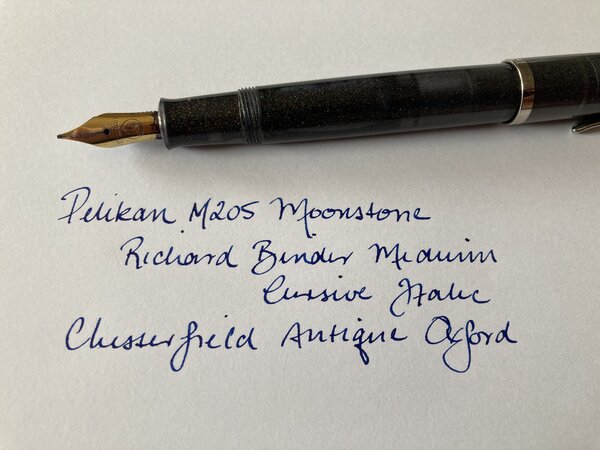 Pelikan M205 Moonstone
Richard Binder Medium
Cursive Italic
Chesterfield Antique Oxford